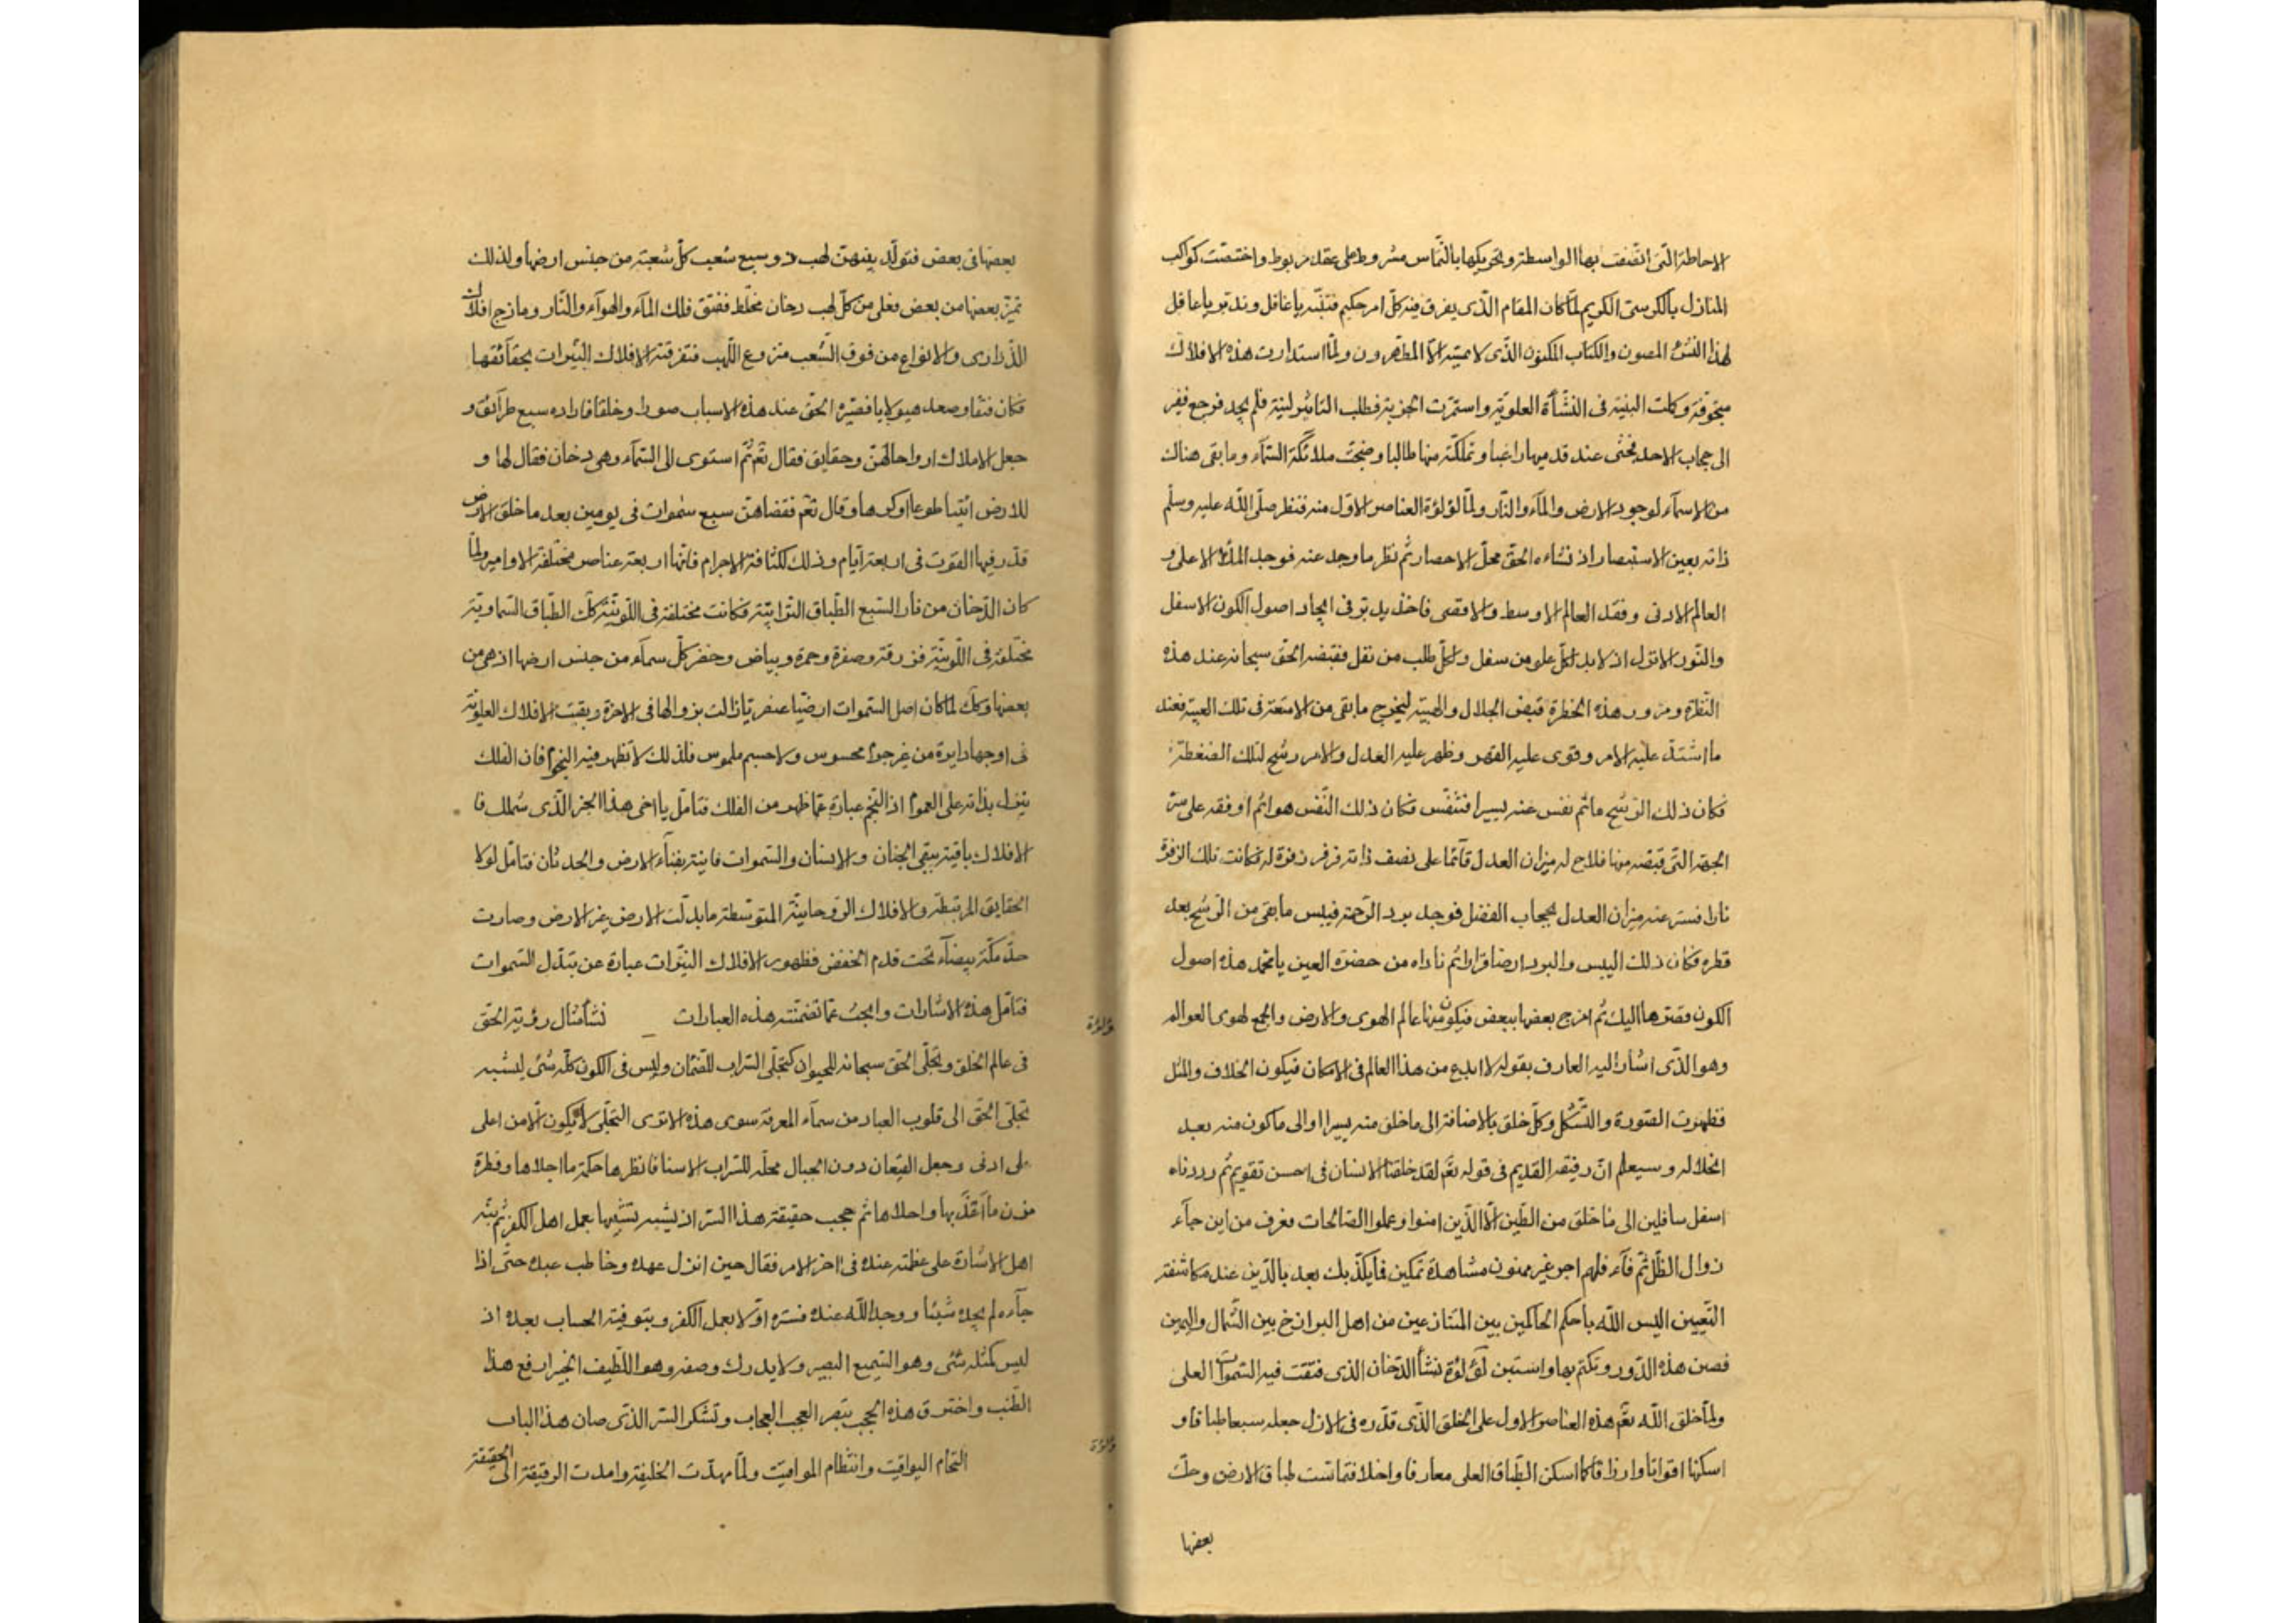 الاحاطة التى اتصفت بها الواسطة وتحريكها بالتماس مشروط على عقد مربوط واختصت كواكب
المنازل بالكرسى الكريم لما كان المقام الذى يفرق فيه كل امر حكيم فتنبه يا غافل وتدبر يا عاقل
لهذا النشء المصون والكتاب المكنون الذى لا يمسه الا المطهرون ولما استدارت هذه الافلاك
مجوفة وكملت البنية فى النشأة العلوية واستمرت الجرية فطلب التاثير لنية فلم يجد فرجع فقر
الى حجاب الاحد فجثى عند قدميها راغبا وتملكه منها طالبا وضجت ملائكة السمآء وما بقى هناك
من الاسمآء لوجود الارض والمآء والنار ولما لؤلؤة العناصر الاول منه فنظر صلى الله عليه وسلم
ذاته بعين الاستبصار اذ نشاءه الحق محل الاحصار ثم نظر ما وجد عنه فوجد الملأ الاعلى و
العالم الادنى وفقد العالم الاوسط والاقصى فاخذ يدبر فى ايجاد اصول الكون الاسفل
والنور الانزل اذ لا بد لكل علو من سفل ولكل طلب من نفل فقبضه الحق سبحانه عند هذه
النظرة ومرور هذه الخطرة قبض الجلال والهيبة ليخرج ما بقى من الامتعة فى تلك العيبة فعند
ما اشتد عليه الامر وقوى عليه القهر وظهر عليه العدل والامر رشح لتلك الضغطة
فكان ذلك الرشح ماثم نفس عنه يسيرا فتنفس فكان ذلك النفس هواثم اوقفه على سر
الجهة التى قبضه منها فلاح له ميزان العدل قآئما على نصف ذاته فزفر زفرة له فكانت تلك الزفرة
نارا فستر عنه ميزان العدل بحجاب الفضل فوجد برد الرحمة فيبس ما بقى من الرشح بعد
قطره فكان ذلك اليبس والبرد ارضا قرارا ثم ناداه من حضرة العين يا محمد هذه اصول
الكون فصرفها اليك ثم امزج بعضها ببعض فيكون منها عالم الهوى والارض والجمع لهوى العوالم
وهو الذى اشار اليه العارف بقوله لا ابدع من هذا العالم فى الامكان فيكون الخلاف والمثل
فظهرت الصورة والشكل وكل خلق بالاضافة الى ما خلق منه يسيرا والى ما كون منه بعد
انحلاله وسيعلم ان رفيقه القديم فى قوله تعم لقد خلقنا الانسان فى احسن تقويم ثم رددناه
اسفل سافلين الى ما خلق من الطين الا الذين امنوا وعملوا الصالحات فعرف من اين جآء
زوال الظل ثم فآء فلهم اجر غير ممنون مشاهدة تمكين فما يكذبك بعد بالدين عند مكاشفة
التعيين اليس الله باحكم الحاكمين بين المتنازعين من اهل البرازخ بين الشمال واليمين
فصن هذه الدرر وتكتم بها واستبن لؤلؤة نشأ الدخان الذى فتقت فيه السموات العلى
ولما خلق الله تعم هذه العناصر الاول على الخلق الذى قدره فى الازل جعله سبعا طباقا و
اسكنها اقواتا وارزاقا كما اسكن الطباق العلى معارفا واخلاقا فتماست طباق الارض وحك
بعضها
بعضها فى بعض فتولد بينهن لهب ذو سبع شعب كل شعبة من جنس ارضها ولذلك
تميز بعضها من بعض فعلى من كل لهب دخان مختلط ففتق فلك المآء والهوآء والنار ومازج افلاك
الذرارى والانواع من فوق الشعب منزوع اللهب فتفرقته الافلاك النيرات بحقآئقها
فكان فتقا وصعد هيولايا فصيره الحق عند هذه الاسباب صورا وخلقا فاداره سبع طرآئق و
جعل الاملاك ارواحا لهن وحقايق فقال تعم ثم استوى الى السمآء وهى دخان فقال لها و
للارض ائتيا طوعا اوكرها وقال تعم فقضاهن سبع سموات فى يومين بعد ما خلق الارض
قدر فيها القوت فى اربعة ايام وذلك لكثافة الاجرام فانها اربعة عناصر مختلفة الاوامر ولما
كان الدخان من نار السبع الطباق الترابية فكانت مختلفة فى اللونية كك الطباق السماوية
مختلفة فى اللونية فزرقة وصفرة وحمرة وبياض وخضر كل سمآء من جنس ارضها اذ هى من
بعضها وكك لما كان اصل السموات ارضيا عنصريا زالت بزوالها فى الاخرة وبقيت الافلاك العلوية
فى اوجها دايرة من غير جرم محسوس ولا جسم ملموس فلذلك لا تظهر فيه النجوم فان الفلك
ينزل بذاته على العموم اذ النجم عبارة عما ظهر من الفلك فتامل يا اخى هذا الجزء الذى شملك فا
الافلاك باقية ببقى الجنان والانسان والسموات فانية بفنآء الارض والحدثان فتامل لولا
الحقايق المرتبطة والافلاك الروحانية المتوسطة ما بدلت الارض غير الارض وصارت
حد مكة بيضآء تحت قدم الخفض فظهور الافلاك النيرات عبارة عن تبدل السموات
فتامل هذه الاشارات وابحث عما تضمنته هذه العبارات نشأ مثال رؤية الحق
لؤلؤة
فى عالم الخلق وتجلى الحق سبحانه للحيوان كتجلى السراب للضمان وليس فى الكون كله شئ يشبه
تجلى الحق الى قلوب العباد من سمآء المعرفة سوى هذه الاترى التجلى لا يكون الا من اعلى
على ادنى وجعل القيعان دون الجبال محله للسراب الاسنا فانظرها حكمة ما اجلاها وقطرة
مزن ما اغذيها واحلاها ثم حجب حقيقة هذا السر اذ يشبه تشبيها بعمل اهل الكفر ثم نبه
اهل الاشارة على عظمته عنده فى اخر الامر فقال حين انزل عهده وخاطب عبده حتى اذا
جآءه لم يجده شيئا ووجد الله عنده فستره اولا بعمل الكفر وبتوفية الحساب بعده اذ
ليس كمثله شئ وهو السميع البصير ولا يدرك وصفه وهو اللطيف الخبير ارفع هذا
الطنب واخترق هذه الحجب تبصر العجب العجاب وتشكر الستر الذى صان هذا الباب
لؤلؤة
التحام اليواقيت وانتظام المواقيت ولما مهدت الخليفة وامدت الرقيقة الى الحقيقة